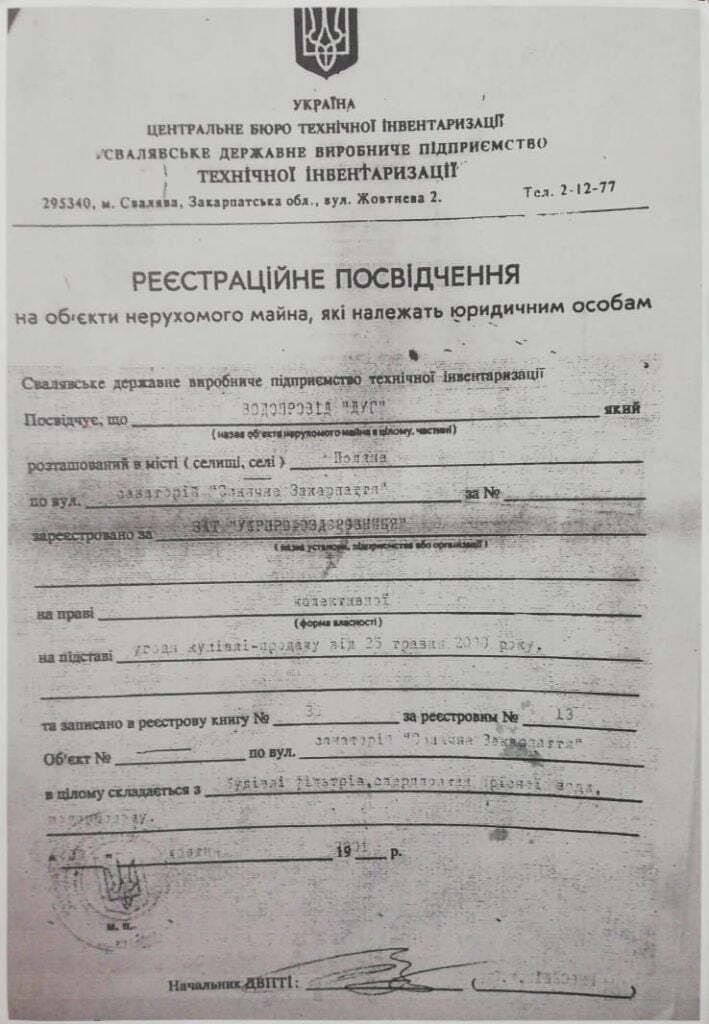 УКРАЇНА
ЦЕНТРАЛЬНЕ БЮРО ТЕХНІЧНОЇ ІНВЕНТАРИЗАЦІЇ
СВАЛЯВСЬКЕ ДЕРЖАВНЕ ВИРОБНИЧЕ ПІДПРИЄМСТВО
ТЕХНІЧНОЇ ІНВЕНТАРИЗАЦІЇ
295340, м. Свалява, Закарпатська обл., вул. Жовтнева 2. Тел. 2-12-77
РЕЄСТРАЦІЙНЕ ПОСВІДЧЕННЯ
на об'єкти нерухомого майна, які належать юридичним особам
Свалявське державне виробниче підприємство технічної інвентаризації
Посвідчує, що ВОДОПРОВІД "ЛУГ" який
(назва об'єкта нерухомого майна в цілому, частині)
розташований в місті (селищі, селі) Поляна
по вул. санаторій "Сонячне Закарпаття" за №
зареєстровано за ЗАТ "УКРПРОФОЗДОРОВНИЦЯ"
(назва установи, підприємства або організації)
на праві колективної
(форма власності)
на підставі угоди купівлі-продажу від 25 травня 2000 року.
та записано в реєстрову книгу № за реєстровим № 13
Об'єкт № по вул. санаторій "Сонячне Закарпаття"
в цілому складається з будівлі фільтрів, води,
19 р.
м. п.
Начальник ДВПТІ: